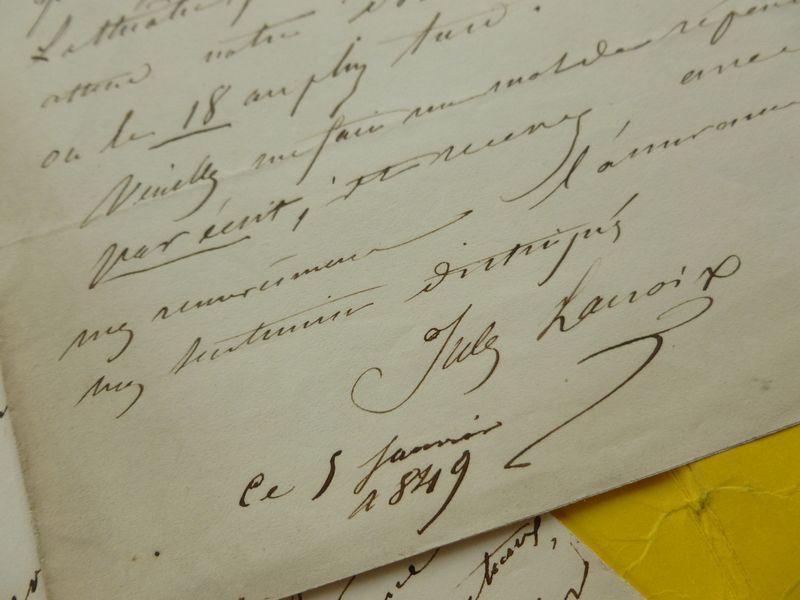 notre
ou le 18 au plus tard.
Veuillez me faire un mot de réponse
par écrit, et recevez, avec
mes remerciments l'assurance
mes sentimens distingués
Jules Lacroix
Ce 5 Janvier
1849